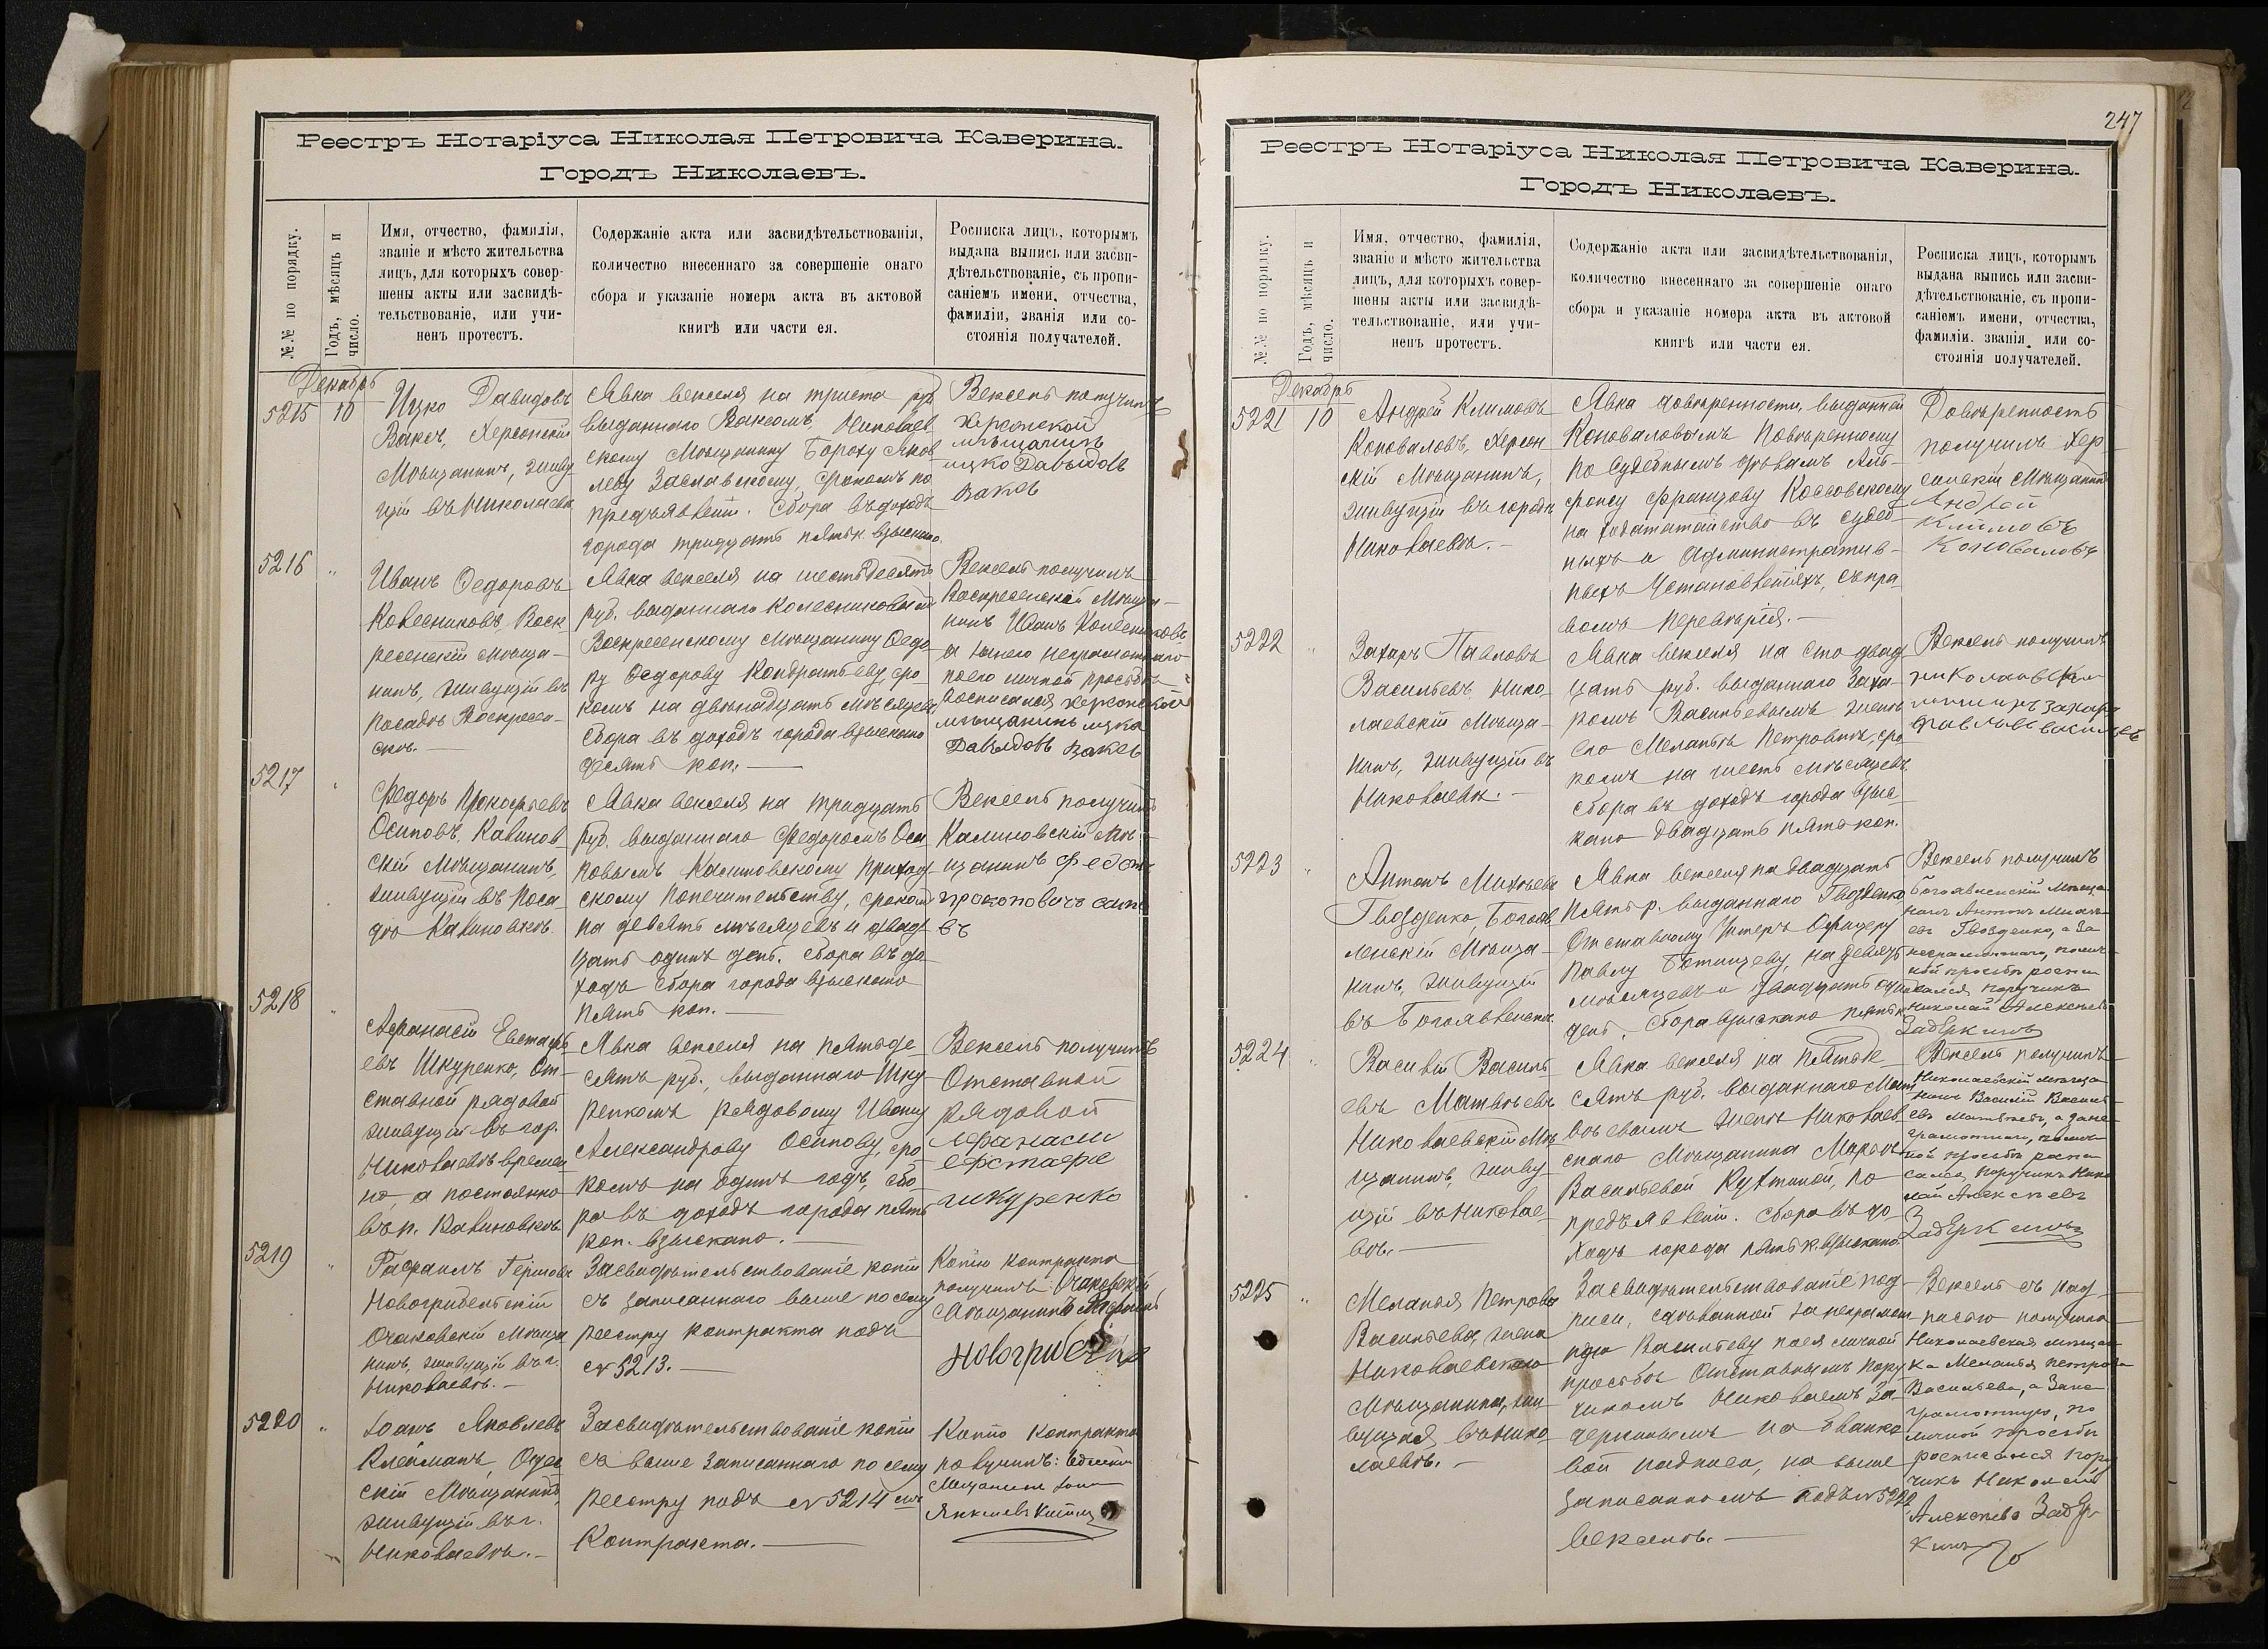 Реестръ Нотаріуса Николая Петровича Каверина.
Городъ Николаевъ.
№.№ по порядку.
Годъ, мѣсяцъ и
число.
Имя, отчество, фамилія,
званіе и мѣсто жительства
лицъ, для которыхъ совер-
шены акты или засвидѣ-
тельствованіе, или учи-
ненъ протестъ.
Содержаніе акта или засвидѣтельствованія,
количество внесеннаго за совершеніе онаго
сбора и указаніе номера акта въ актовой
книгѣ или части ея.
Росписка лицъ, которымъ
выдана выпись или засви-
дѣтельствованіе, съ пропи-
саніемъ имени, отчества,
фамиліи, званія или со-
стоянія получателей.
Декабрь
5215 10
Ицко Давидовъ
Ваксъ, Херсонскій
Мѣщанинъ, живу
щій въ Николаевѣ
Явка векселя на триста руб.
выданнаго Ваксомъ, Николаев
скому Мѣщанину Боруху Янке
леву Заславскому, срокомъ по
предъявленіи. Сбора въ доходъ
города тридцать пять к. взыскано.
Вексель получилъ
Херсонской
мѣщанинъ
ицко Давыдовъ
Ваксъ
5216 "
Иванъ Ѳедоровъ
Колесниковъ, Воск
ресенскій мѣща-
нинъ, живущій въ
посадѣ Воскресен-
скѣ.
Явка векселя на шестьдесятъ
руб. выданнаго Колесниковымъ
Воскресенскому мѣщанину Ѳедо
ру Ѳедорову Кондратьеву, сро-
комъ на двѣнадцать мѣсяцевъ,
Сбора въ доходъ города взыскано
десять коп.
Вексель получилъ
Воскресенскій Мѣща-
нинъ Иванъ Колесниковъ
а за него неграмотнаго
по его личной просьбѣ
росписался херсонской
мѣщанинъ ицка
Давыдовъ Ваксъ
5217 "
Федоръ Прокофьевъ
Осиповъ, Калинов
скій мѣщанинъ,
живущій въ поса-
дѣ Калиновкѣ.
Явка векселя на тридцать
руб. выданнаго Федоромъ Оси
повымъ Калиновскому приход-
скому попечительству, срокомъ
на девять мѣсяцевъ и двад-
цать одинъ день. Сбора въ до-
ходъ сбора города взыскано
пять коп.
Вексель получилъ
Калиновскій мѣ-
щанинъ федоръ
прокоповичъ осипо
въ
5218 "
Афанасій Евстафь
евъ Шкуренко, От-
ставной рядовой
живущій въ гор.
Николаевѣ времен
но, а постоянно
въ п. Калиновкѣ
Явка векселя на пятьде-
сятъ руб., выданнаго Шку-
ренкомъ рядовому Ивану
Александрову Осипову, сро
комъ на одинъ годъ, сбо
ра въ доходъ города пять
коп. взыскано.
Вексель получилъ
Отставной
рядовой
афанасий
ефстафе
шкуренко
5219 "
Рафаилъ Гершовъ
Новогрудельскій
Очаковскій мѣща
нинъ, живущій въ г.
Николаевѣ.
Засвидѣтельствованіе копіи
съ записаннаго выше по сему
реестру контракта подъ
№ 5213.
Копію контракта
получилъ Очаковскій
Мѣщанинъ Рафаилъ
5220 "
Іоанъ Яковлевъ
Клейманъ, Одес
скій Мѣщанинъ,
живущій въ г.
Николаевѣ.
Засвидѣтельствованіе копіи
съ выше записаннаго по сему
реестру подъ № 5214 мъ
Контракта.
Копію контракта
получилъ: Одесскій
Мещанинъ
247
Реестръ Нотаріуса Николая Петровича Каверина.
Городъ Николаевъ.
№.№ по порядку.
Годъ, мѣсяцъ и
число.
Имя, отчество, фамилія,
званіе и мѣсто жительства
лицъ, для которыхъ совер-
шены акты или засвидѣ-
тельствованіе, или учи-
ненъ протестъ.
Содержаніе акта или засвидѣтельствованія,
количество внесеннаго за совершеніе онаго
сбора и указаніе номера акта въ актовой
книгѣ или части ея.
Росписка лицъ, которымъ
выдана выпись или засви-
дѣтельствованіе, съ пропи-
саніемъ имени, отчества,
фамиліи, званія или со-
стоянія получателей.
Декабрь
5221 10
Андрей Климовъ
Коноваловъ, Херсон
скій Мѣщанинъ,
живущій въ городѣ
Николаевѣ.
Явка довѣренности, выданной
Коноваловымъ Повѣренному
по судебнымъ дѣламъ Аль-
фонсу Францову Коссовскому
на ходатайство въ судеб-
ныхъ и Административ-
ныхъ Установленіяхъ, съ пра
вомъ перевѣрія.
Довѣренность
получилъ Хер
сонскій Мѣщанинъ
Андрей
Климовъ
Коноваловъ
5222 "
Захаръ Павловъ
Васильевъ, Нико-
лаевскій мѣща-
нинъ, живущій въ
Николаевѣ.
Явка векселя на сто двад
цать руб. выданнаго Заха-
ромъ Васильевымъ женѣ
его Меланьѣ Петровнѣ, сро
комъ на шесть мѣсяцевъ.
Сбора въ доходъ города взыс-
кано двадцать пять коп.
Вексель получилъ
николаевскій
захаръ
павловъ васильевъ
5223 "
Антонъ Михѣевъ
Гвозденко, Богояв
ленскій мѣща-
нинъ, живущій
въ Богоявленскѣ.
Явка векселя на двадцать
пять р. выданнаго Гвозденко
Отставному Унтеръ Офицеру
Павлу, на девять
мѣсяцевъ и двадцать одинъ
день. Сбора взыскано пять к.
Вексель получилъ
Богоявленскій мѣща
нинъ Антонъ Михѣ-
евъ Гвозденко, а за
неграмотнаго, по лич-
ной просьбѣ роспи
сался Поручикъ
Николай Алексѣевъ
Задеркинъ
5224 "
Василій Василь
евъ Матвѣевъ
Николаевскій мѣ
щанинъ, живу-
щій въ Николае-
вѣ.
Явка векселя на пятьде-
сятъ руб. выданнаго Мат
вѣевымъ женѣ Николаев
скаго Мѣщанина Марѳѣ
Васильевой Кухтиной, по
предъявленіи. Сбора въ до-
ходъ города пять к. взыскано.
Вексель получилъ
Николаевскій мѣща
нинъ Василій Василь-
евъ Матвѣевъ, а за не-
грамотнаго, по лич-
ной просьбѣ роспи
сался, Поручикъ Нико
лай Алексѣевъ
Задеркинъ
5225 "
Меланья Петрова
Васильева, жена
Николаевскаго
Мѣщанина, жи-
вущая въ Нико-
лаевѣ.
Засвидѣтельствованіе под-
писи, сдѣланной за неграмот
ную Васильеву по ея личной
просьбѣ Отставнымъ Пору
чикомъ Николаемъ За-
деркинымъ на бланко
вой надписи, на выше
записанномъ подъ № 5222
векселѣ.
Вексель съ над-
писью получила
Николаевская мѣщан
ка Меланья Петрова
Васильева, а за не-
грамотную, по
личной просьбѣ
росписался Пору
чикъ Николай
Алексѣевъ Задер-
кинъ